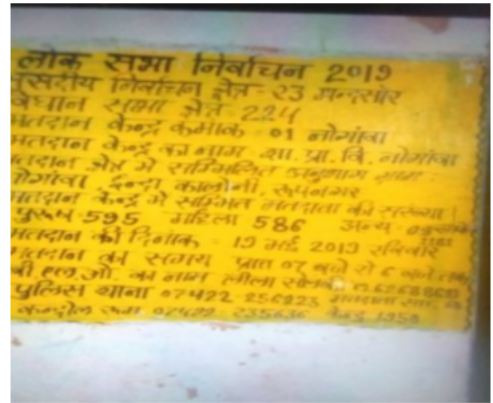 लोक सभा निर्वाचन 2019
संसदीय निर्वाचन क्षेत्र - 23 मन्दसौर
विधान सभा क्षेत्र 224
मतदान केन्द्र कमाक 01 नोगांवा
मतदान केन्द्र का नाम शा. प्रा. वि. नोगांवा
मतदान क्षेत्र में सम्मिलित अनुभाग
नोगांवा इन्द्रा कालोनी, रूपनगर
मतदान केन्द्र में सम्मिलित मतदाता की संख्या
पुरूष - 595 महिला 586 अन्य
मतदान की दिनांक 19 मई 2019 रविवार
मतदान का समय प्रात 07 बजे से 6 बजे तक
बी एल.ओ. का नाम लीला
पुलिस थाना 07422 256223 मतदाता
कन्ट्रोल रूम 07422 235636 1950